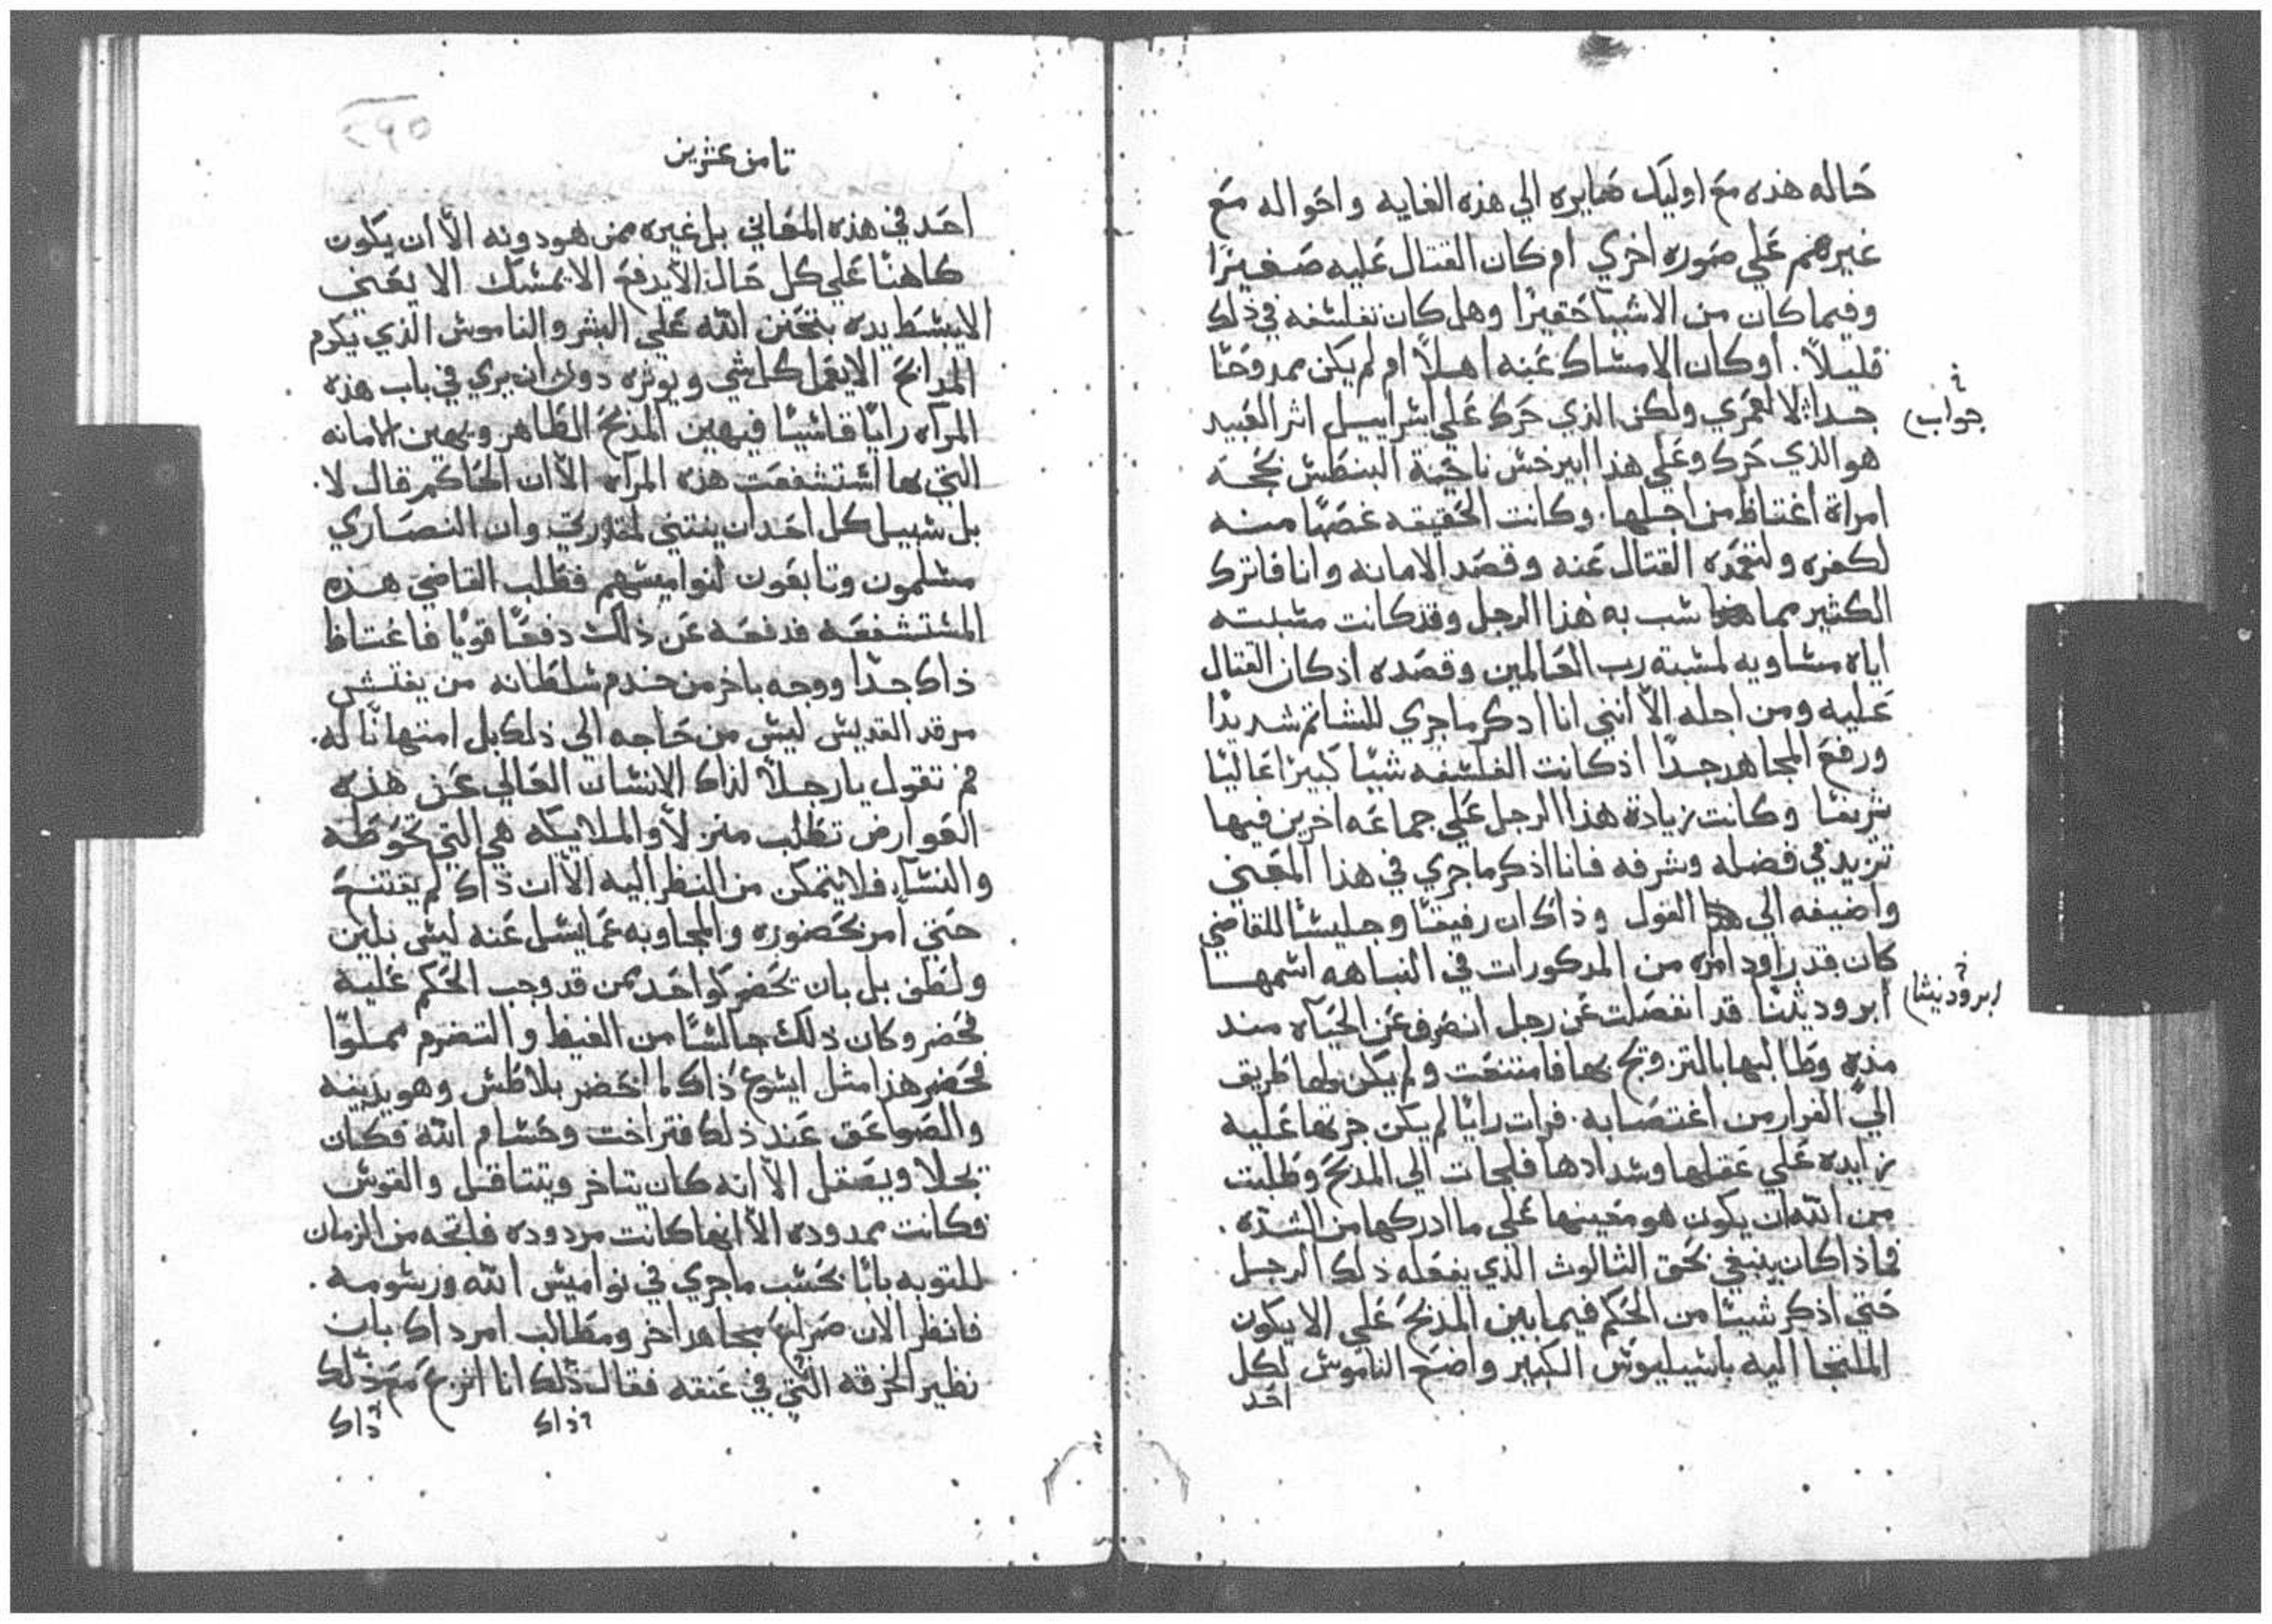 حاله هذه مع اوليك صايره الي هذه الغايه واحواله مع
غيرهم علي صوره اخري ام كان القتال عليه صغيرًا
وفيما كان من الاشيا حقيرًا وهل كان تفلسفه في ذلك
قليلاً. او كان الامساك عنه اهلاً ام لم يكن ممدوحًا
جواب
جدا لا لعمري ولكن الذي حرك علي اسراييل اثر العبيد
هو الذي حرك وعلي هذا ابيرخس ناحية البنطس بحجه
امراة اغتاظ من اجلها. وكانت الحقيقه غضبًا منه
لكفره ولتعمده القتال عنه وقصد الامانه وانا فاترك
الكثير مما شب به هذا الرجل وقد كانت مسبته
اياه مساويه لمسبته رب العالمين وقصده اذ كان القتال
عليه ومن اجله الا انني انا ادكر ما جري للشاتم شديدًا
ورفع المجاهد جدًا اذ كانت الفلسفه شيًا كبيرًا عاليًا
شريفًا وكانت زيادة هذا الرجل علي جماعه اخرين فيها
تزيد في فضله وشرفه فانا اذكر ما جري في هذا المعني
واضيفه الي القول وذاك ان رفيقًا وجليسًا للقاضي
كان قد راود امراه من المدكورات في النباهه اسمها
ابروديتنا قد انفصلت عن رجل انصرف عن الحياه مند
مده وطالبها بالتزويج بها فامتنعت ولم يكن لها طريف
الي الفرار من اغتصابه. فرات رايًا لم يكن جرتها عليه
زايده علي عقلها وسدادها فلجات الي المذبح وطلبت
من الله ان يكون هو معينها علي ما ادركها من الشده.
فماذا كان ينبغي بحق الثالوث الذي يفعله ذلك الرجل
حتي اذكر شيئًا من الحكم فيما بين المذبح علي الا يكون
الملتجا اليه باسيليوس الكبير واضع الناموس لكل
احد
تامن عشرين
احد في هذه المعاني بل غيره ممن هو دونه الا ان يكون
كاهنًا علي كل حال الا يدفع الا يمسك الا يعني
الا يبسط يده بتحنن الله علي البشر والناموس الذي يكرم
المدابح الا يعمل كل شي ويوثره دون ان يري في باب هذه
المراه رايًا قاسيًا فيهين المذبح الطاهر ويهين الامانه
التي بها استشفعت هذه المراه الا ان الحاكم قال لا.
بل سبيل كل احد ان ينتني لمقدرتي وان النصاري
مسلمون وتابعون لنواميسهم فطلب القاضي هذه
المستشفعه فدفعه عن ذلك دفعًا قويًا فاغتاظ
ذاك جدًا ووجه باخر من خدم سلطانه من يفتش
مرقد القديس ليس من حاجه الي ذلك بل امتهانًا له.
فم تقول يا رجلاً لذاك الانسان العالي عن هذه
العوارض تطلب منزلاً والملايكه هي التي تحوطه
والنساء فلا يتمكن من النظر اليه الا ان ذاك لم يقتنع
حتي امر بحضوره والمجاوبه عما يسل عنه ليس بلين
ولطف بل بان يحضر كواحد ممن قد وجب الحكم عليه
فحضر وكان ذلك جالسًا من الغيظ والتضرم مملوًا
فحضر هذا مثل ايسوع ذاك لما احضر بلاطس وهو يدينه
والصواعق عند ذلك فتراخت وحسام الله فكان
يجلا ويصقل الا انه كان يتاخر ويتتاقل والقوس
فكانت ممدوده الا انها كانت مردوده فاتحه من الزمان
للتوبه بابًا بحسب ما جري في نواميس الله ورسومه.
فانظر الان صراع مجاهد اخر ومطالب امر داك بان
نظير الخرقه التي في عنقه فقال ذلك انا انزع مع ذلك
ذاك ذاك